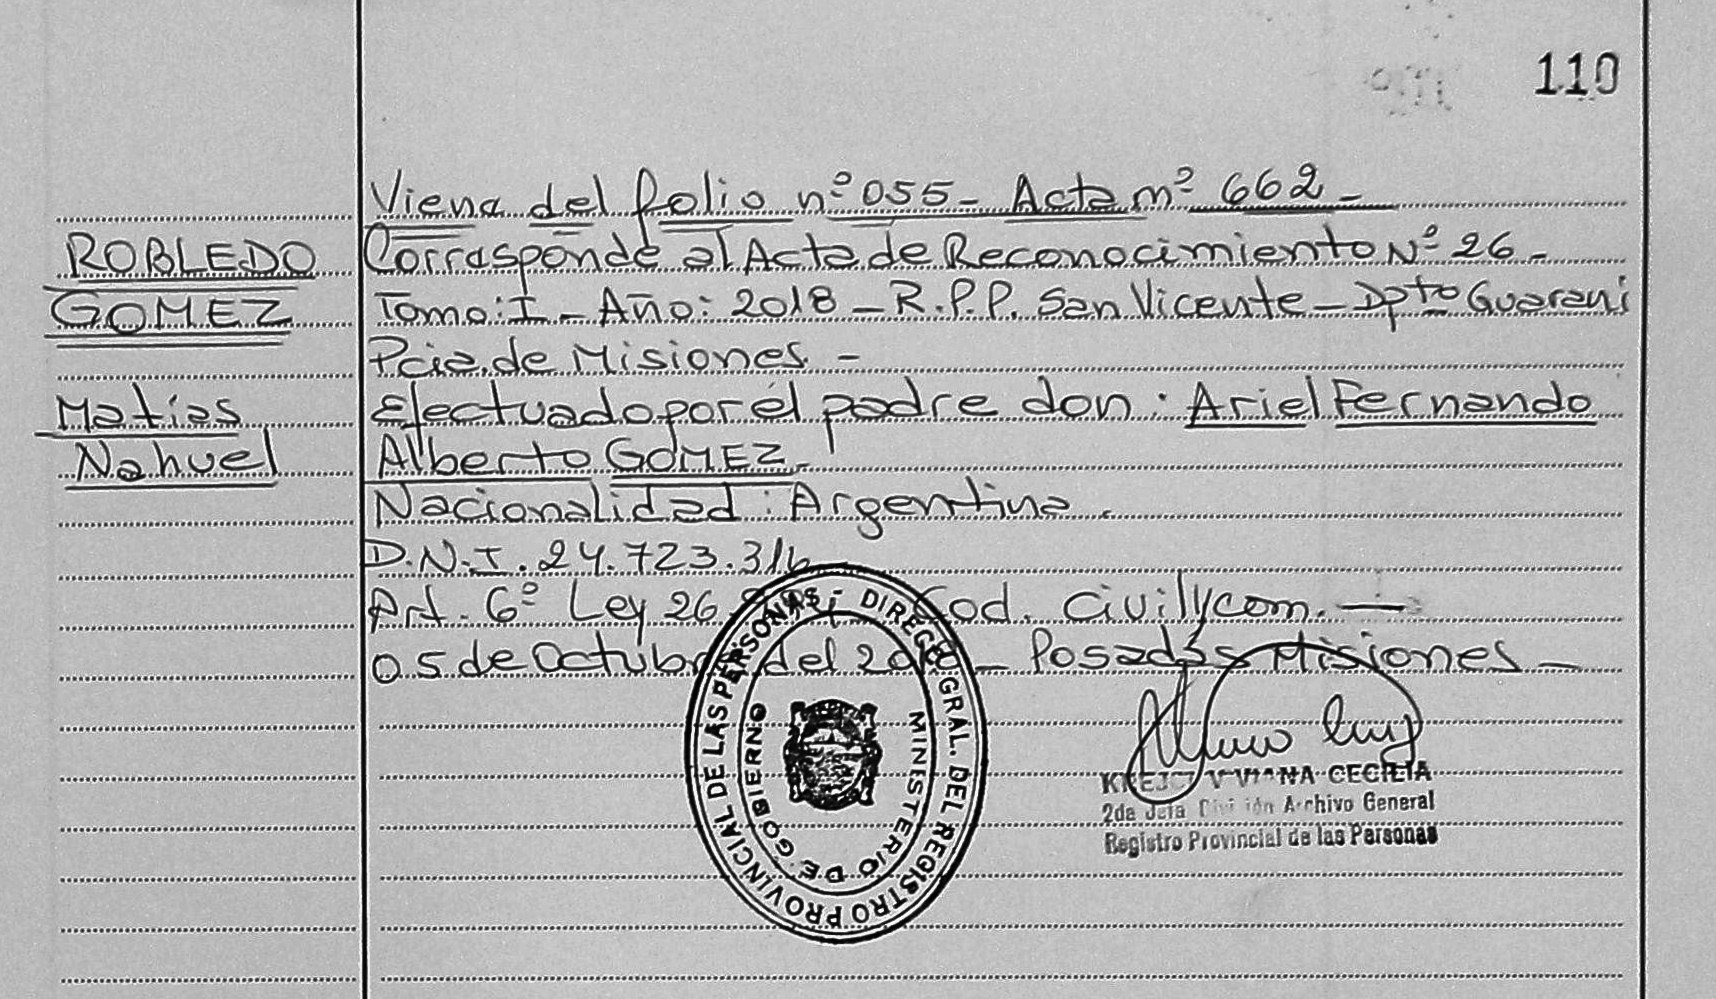 110
Viene del folio nº 055 - Acta nº 662 -
ROBLEDO
GOMEZ
Matías
Nahuel
Corresponde al Acta de Reconocimiento Nº 26 -
Tomo: I - Año: 2018 - R.P.P. San Vicente - Dpto Guarani
Pcia. de Misiones. -
Efectuado por el padre don: Ariel Fernando
Alberto GOMEZ.
Nacionalidad: Argentina.
D.N.I. 24.723.316
Art. 6º Ley 26. Cod. Civil y com. —
05 de Octubre del - Posadas Misiones -
DIREC. GRAL. DEL REGISTRO PROVINCIAL DE LAS PERSONAS
MINISTERIO DE GOBIERNO
VIVIANA CECILIA
2da Jefa División Archivo General
Registro Provincial de las Personas